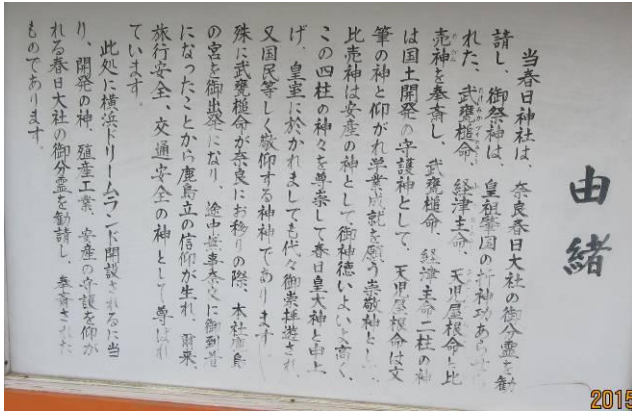 由緒
当春日神社は、奈良春日大社の御分霊を勧
請し、御祭神は、皇祖肇国の折神功あらせら
れた、武甕槌命、経津主命、天児屋根命と比
売神を奉斎し、武甕槌命、経津主命二柱の神
は国土開発の守護神として、天児屋根命は文
筆の神と仰がれ学業成就を願う崇敬神とし、
比売神は安産の神として御神徳いよいよ高く、
この四柱の神々を尊崇して春日皇大神と申上
げ、皇室に於かれましても代々御崇拝遊され、
又国民等しく敬仰する神神であります
殊に武甕槌命が奈良にお移りの際、本社鹿島
の宮を御出発になり、途中無事奈良に御到着
になったことから鹿島立の信仰が生れ、爾来、
旅行安全、交通安全の神として尊ばれ
ています。
此処に横浜ドリームランド開設されるに当
り、開発の神、殖産工業、安産の守護を仰が
れる春日大社の御分霊を勧請し、奉斎された
ものであります。
2015